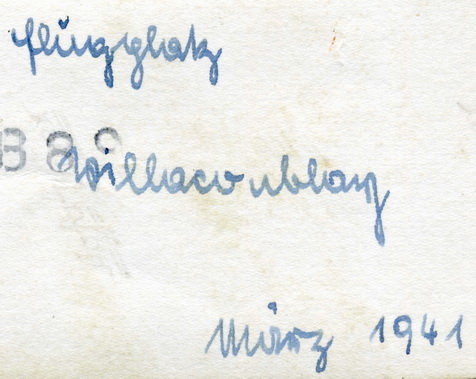 Flugplatz
Willacoublay
März 1941